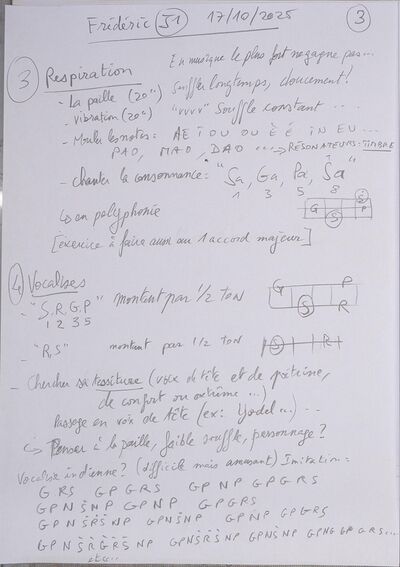 Frédéric J1 17/10/2025 3
En musique le plus fort ne gagne pas...
3 Respiration Souffler longtemps, doucement!
- La paille (20'')
- vibration (20'') "vvvv" Souffle constant ....
- Mouler les notes: A E I O U OU È É IN EU...
PAO, MAO, DAO ...→ RÉSONATEURS: TIMBRE
- Chanter la consonnance: "Sa, Ga, Pa, Ṡa"
1 3 5 8
↳ en polyphonie G S P Ṡ
[exercice à faire aussi sur 1 accord majeur]
4 Vocalises
- "S.R.G.P" montent par 1/2 TON G P S R
1 2 3 5
- "R,S" montent par 1/2 TON S R
- Chercher sa tessiture (voix de tête et de poitrine,
de confort ou extrême ...)
Passage en voix de tête (ex: Yodel ...) ..
↳ Penser à la paille, faible souffle, personnage?
Vocalise indienne? (difficile mais amusant) Imitation:
G R S G P G R S G P N P G P G R S
G P N Ṡ N P G P N P G P G R S
G P N Ṡ Ṙ Ṡ N P G P N Ṡ N P G P N P G P G R S
G P N Ṡ Ṙ Ġ Ṙ Ṡ N P G P N Ṡ Ṙ Ṡ N P G P N Ṡ N P G P N G G P G R S...
etc...